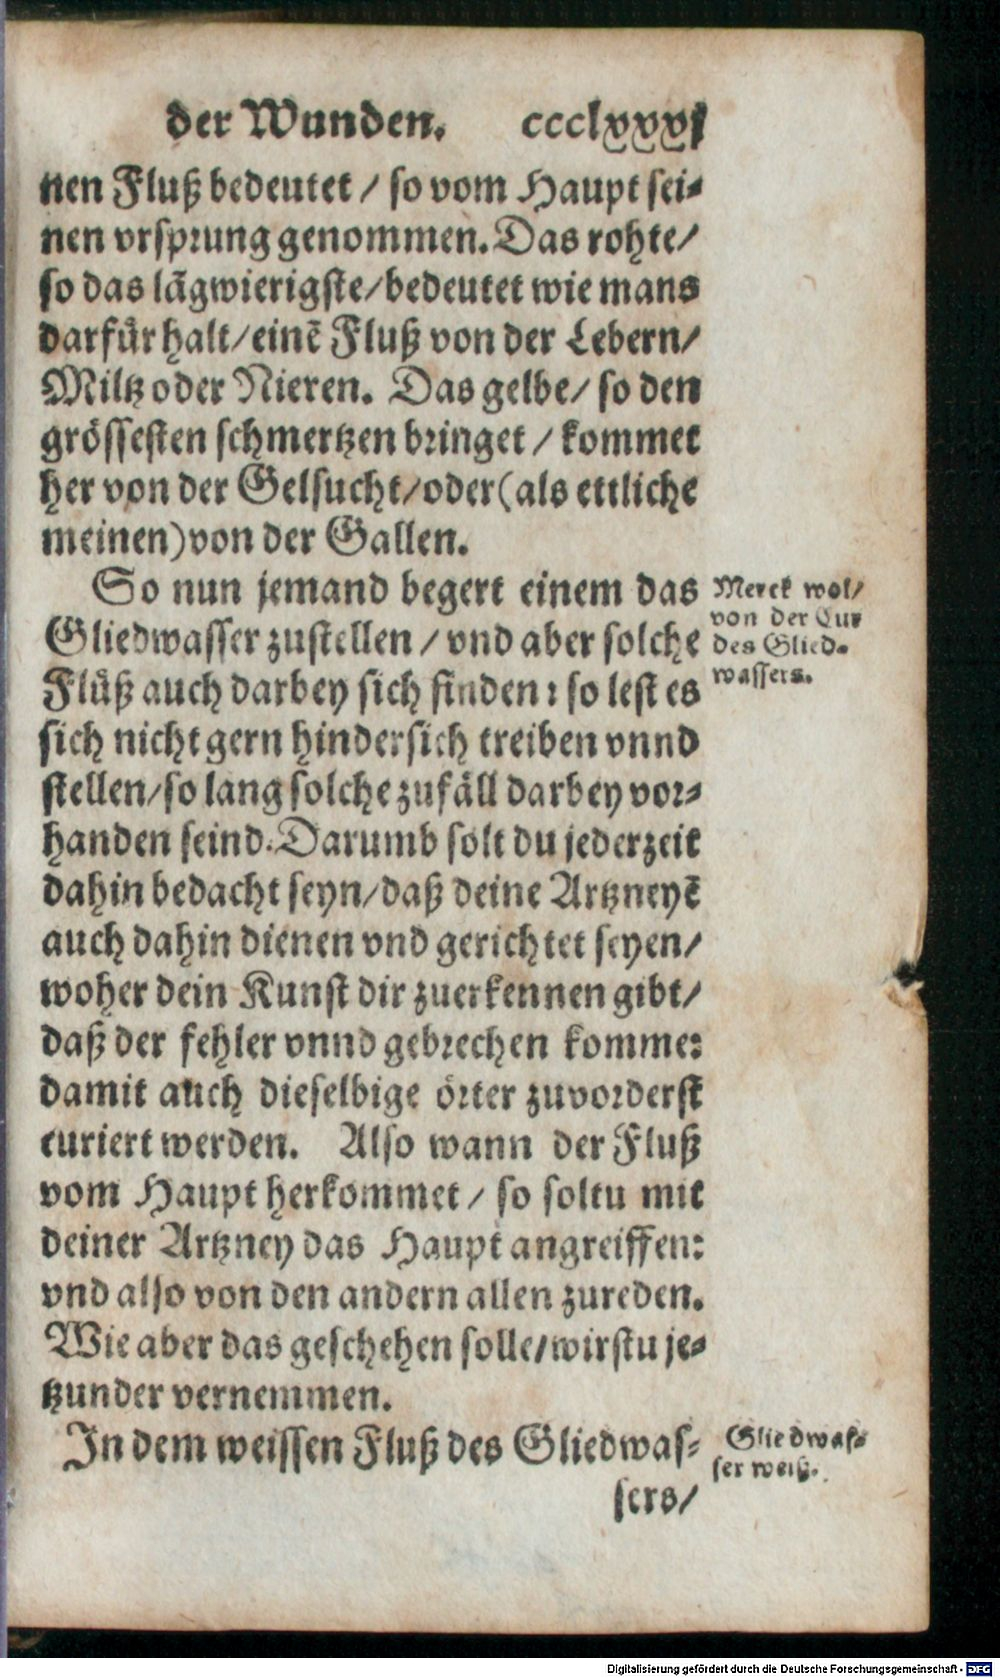 der Wunden. ccclxxxj
nen Fluß bedeutet / so vom Haupt sei-
nen vrsprung genommen. Das rohte/
so das lãgwierigste/bedeutet wie mans
darfür halt/einẽ Fluß von der Lebern/
Miltz oder Nieren. Das gelbe/ so den
grössesten schmertzen bringet / kommet
her von der Gelsucht/oder(als ettliche
meinen)von der Gallen.
So nun jemand begert einem das
Gliedwasser zustellen / vnd aber solche
Flüß auch darbey sich finden: so lest es
sich nicht gern hindersich treiben vnnd
stellen/so lang solche zufäll darbey vor-
handen seind. Darumb solt du jederzeit
dahin bedacht seyn/daß deine Artzneyẽ
auch dahin dienen vnd gerichtet seyen/
woher dein Kunst dir zuerkennen gibt/
daß der fehler vnnd gebrechen komme:
damit auch dieselbige örter zuvorderst
curiert werden. Also wann der Fluß
vom Haupt herkommet / so soltu mit
deiner Artzney das Haupt angreiffen:
vnd also von den andern allen zureden.
Wie aber das geschehen solle/wirstu je-
tzunder vernemmen.
In dem weissen Fluß des Gliedwas-
sers/
Merck wol/
von der Cur
des Glied-
wassers.
Gliedwas-
ser weiß.
Digitalisierung gefördert durch die Deutsche Forschungsgemeinschaft - DFG